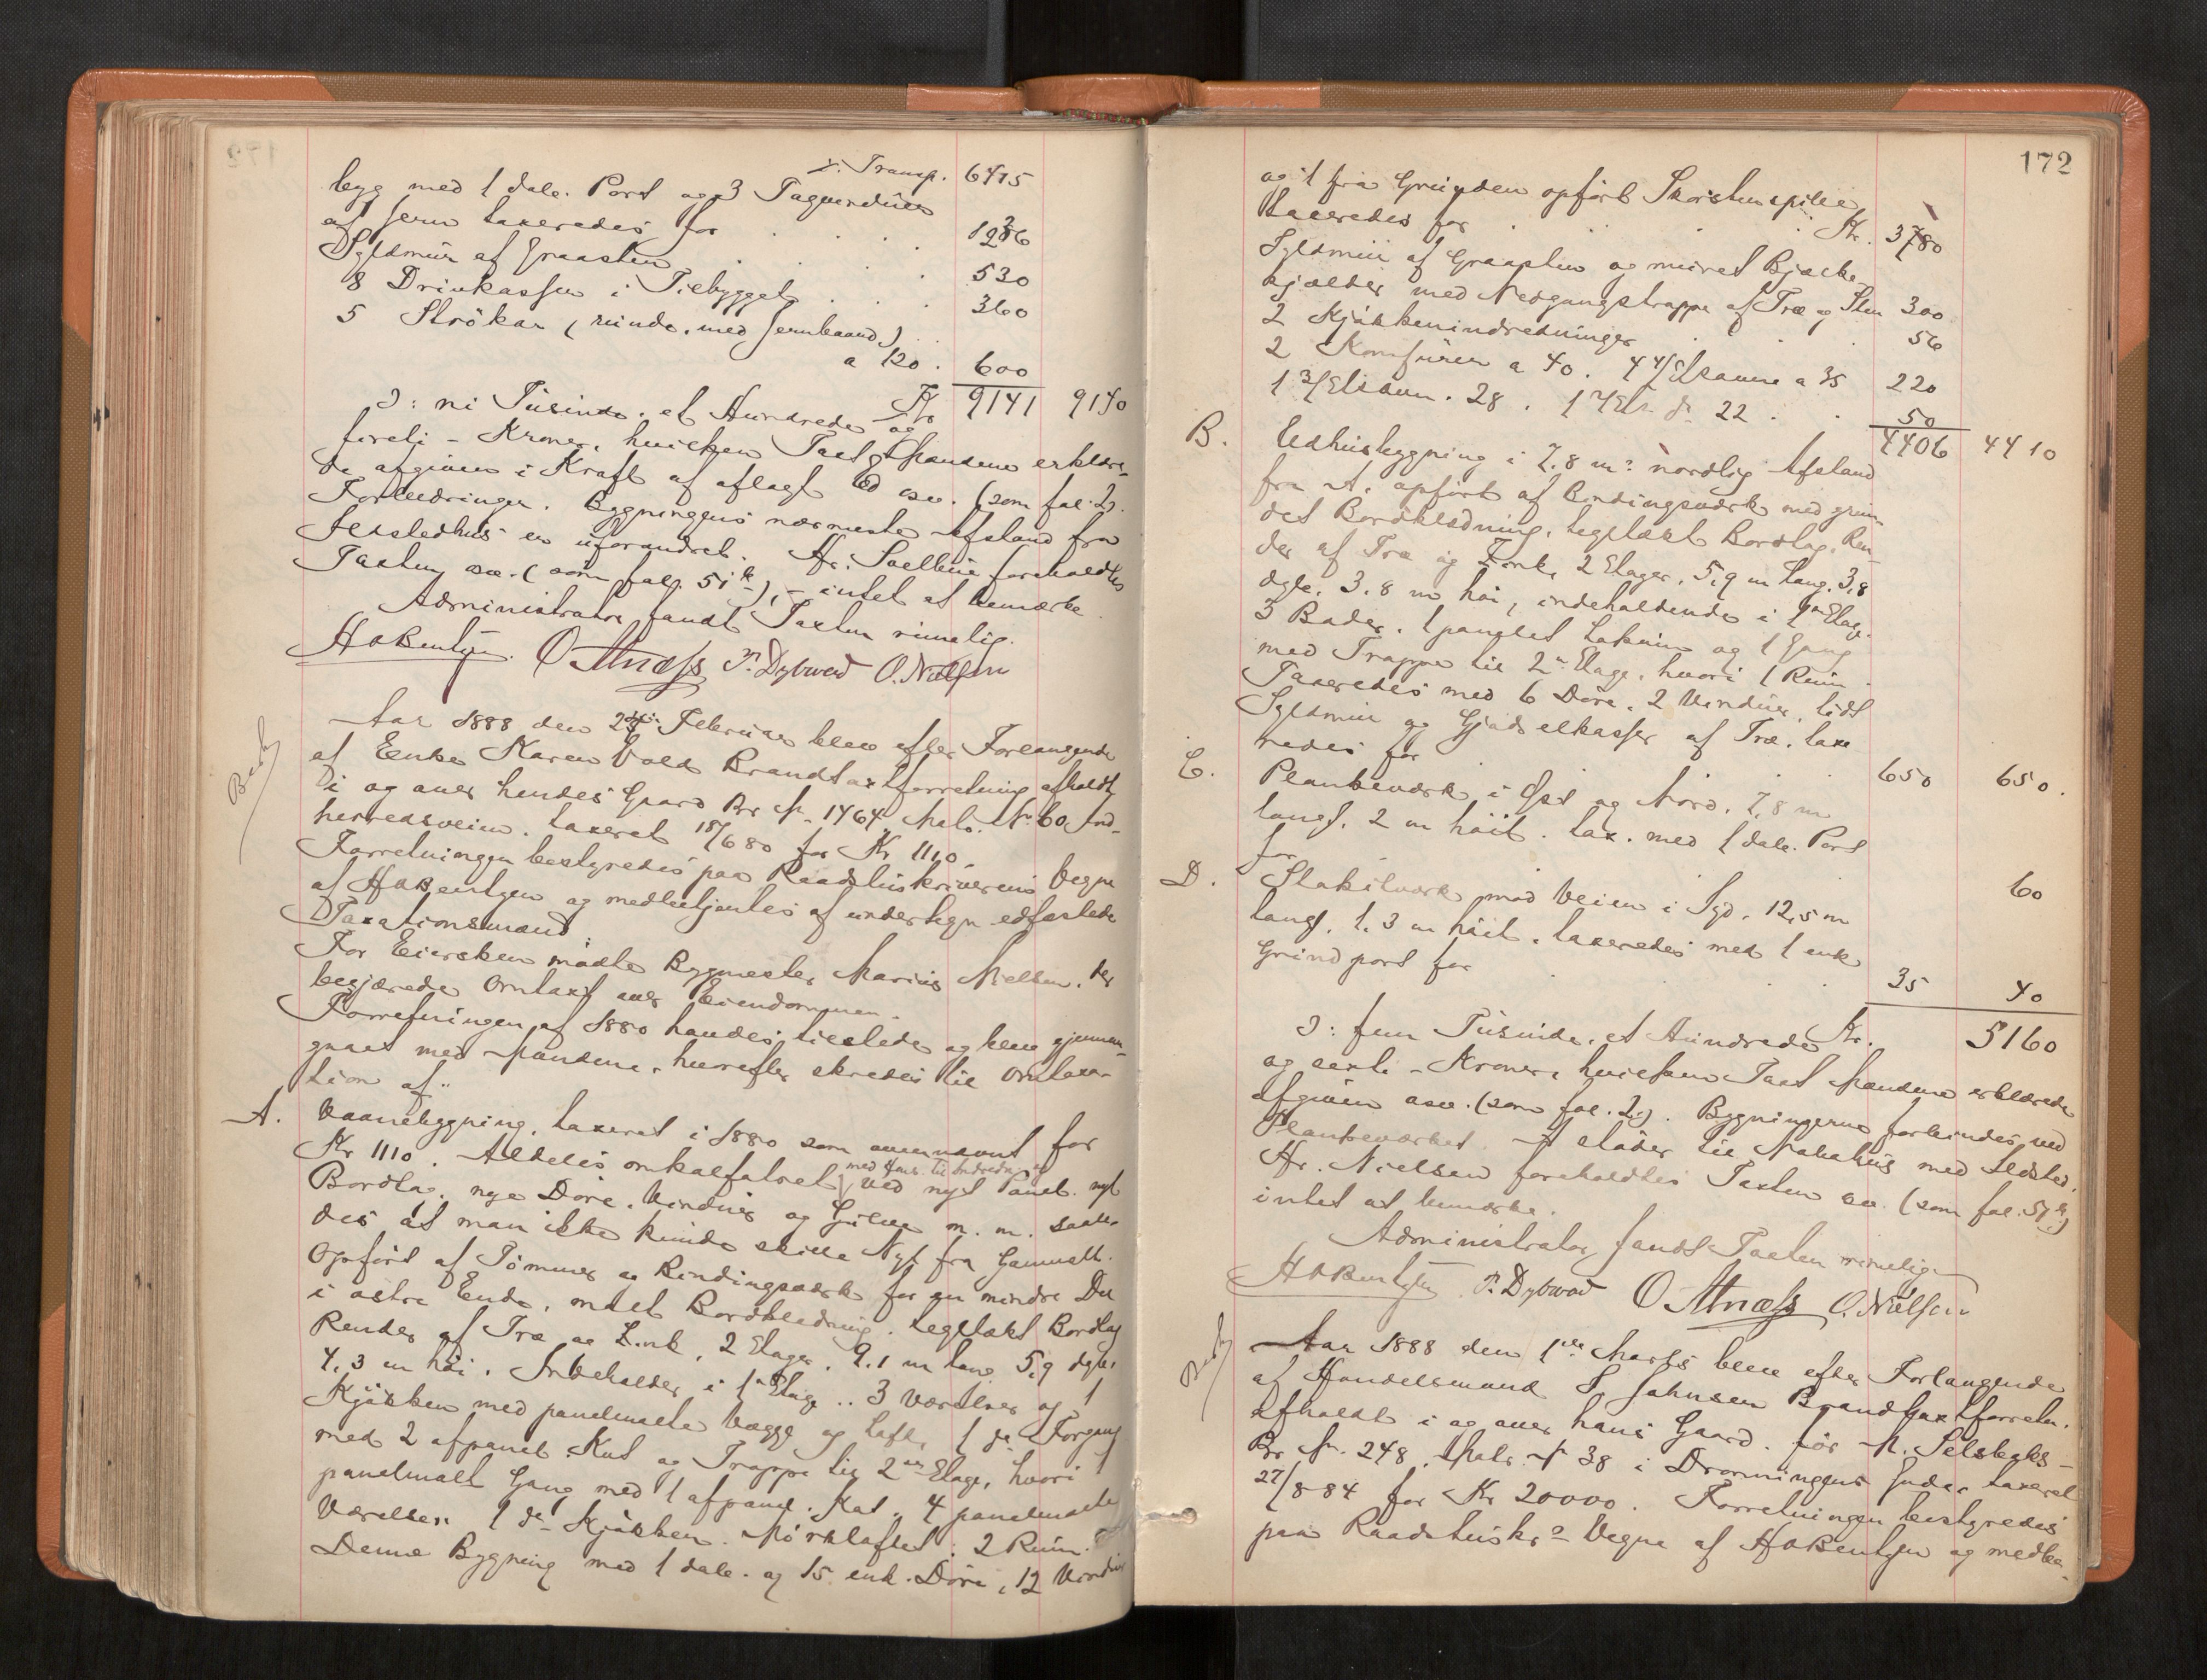 Transp. 6475
byg med 1 dobb. Port og 3 Tagvinduer
af Jern taxeredes for . . . 1236
Syldmur af Graasten . . . 530
8 Drinkasser i Tilbygget . . . 360
5 Strökar (runde, med Jernbaand)
a 120 . 600
Kr 9141 9140
ɔ: ni Tusinde, et Hundrede og
foreti - Kroner, hvilken Taxt Mændene erklære-
de afgiven i Kraft af aflagt Ed osv. (som fol. 2).
Forbedringer. Bygningens nærmeste Afstand fra
Ildstedhus er uforandret. Hr. foreholdtes
Taxten osv. (som fol. 51), - intet at bemærke.
Administrator fandt Taxten rimelig.
HOBentzen. O Alnæss P. Dybwad O. Nielsen
Aar 1888 den Februar blev efter Forlangende
af Enke Karen Vold Brandtaxtforretning afholdt
i og over hendes Gaard Br No. 1464, Matr. No 60, Ind-
herredsveien, taxeret 18/6 80 for Kr 1110.
Forretningen bestyredes paa Raadstuskriverens Vegne
af HOBentzen og medbetjentes af undertegn. edfæstede
Taxationsmænd.
For Eiersken mødte Bygmester Marius Nielsen, der
begjærede Omtaxt over Eiendommen.
Forretningen af 1880 havdes tilstede og blev gjennem-
gaaet med Mændene, hvorefter skredes til Omtaxa-
tion af:
A. Vaanebygning, taxeret i 1880 som ovennævnt for
Kr 1110. Aldeles omkalfatret ved nyt Panel, nyt
Bordtag, nye Döre, Vinduer og Gulve m. m. saale-
des at man ikke kunde skille Nyt fra Gammelt.
Opfört af Tömmer og Bindingsværk for en mindre Del
i östre Ende, malt Bordklædning, teglækt Bordtag
Render af Træ og Zink, 2 Etager, 9.1 m lang 5,9 dyb,
4,3 m höi. Indeholder i 1ste Etage: 3 Værelser og 1
Kjökken med panelmalte Vægge og Lofter, 1 do Forgang
med 2 afpanel. Kot og Trappe til 2den Etage, hvori 1
panelmalt Gang med 1 afpanel. Kot, 4 panelmalte
Værelser, 1 do Kjökken. Mörkloftet: 2 Rum.
Denne Bygning med 1 dobb. og 15 enk. Döre, 12 Vinduer
172
og 1 fra Grunden opfört Skorstenspibe,
taxeredes for . . . Kr. 3780
Syldmur af Graasten og muret Bjælke-
kjælder med Nedgangstrappe af Træ og Sten 300
2 Kjökkenindretninger . . . 56
2 Komfurer a 40. 4 Etsovne a 35 220
1 3/Etsovn. 28. 1 do 22 . . 50
4406 4410
B. Udhusbygning i 7.8 m nordlig Afstand
fra A, opfört af Bindingsværk med grun-
det Bordklædning, teglækt Bordtag, Ren-
der af Træ og Zink, 2 Etager, 5,9 m lang, 3,8
dyb, 3,8 m höi, indeholdende i 1ste Etage
3 Boder, 1 panelet Lokum og 1 Gang
med Trappe til 2den Etage, hvori 1 Rum.
Taxeredes med 6 Döre, 2 Vinduer, lidt
Syldmur og Gjödselkasser af Træ, taxe
redes for . . . 650 650.
C. Plankeværk i Öst og Nord, 7,8 m
langt, 2 m höit, tax. med 1 dobb. Port
for 60
D. Stakitværk mod Veien i Syd, 12,5 m
langt, 1,3 m höit, taxeredes med 1 enk
Grindport for . . . 35 40
Kr. 5160
ɔ: fem Tusinde, et Hundrede
og sexti - Kroner, hvilken Taxt Mændene erklærede
afgiven osv. (som fol. 2). Bygningerne forbindes ved
Plankeværket. A stöder til Nabohus med Ildsted.
Hr. Nielsen foreholdtes Taxten osv. (som fol. 51)
intet at bemærke.
Administrator fandt Taxten rimelig
HOBentzen P. Dybwad O Alnæss O. Nielsen
Aar 1888 den 1ste Marts blev efter Forlangende
af Handelsmand Johnsen Brandtaxtforretn.
afholdt i og over hans Gaard, för M. Selsbaks -
Br No. 248, Matr. No 38 i Dronningens Gade, taxeret
27/8 84 for Kr 20000. Forretningen bestyredes
paa Raadstuskrs Vegne af HOBentzen og medbe-